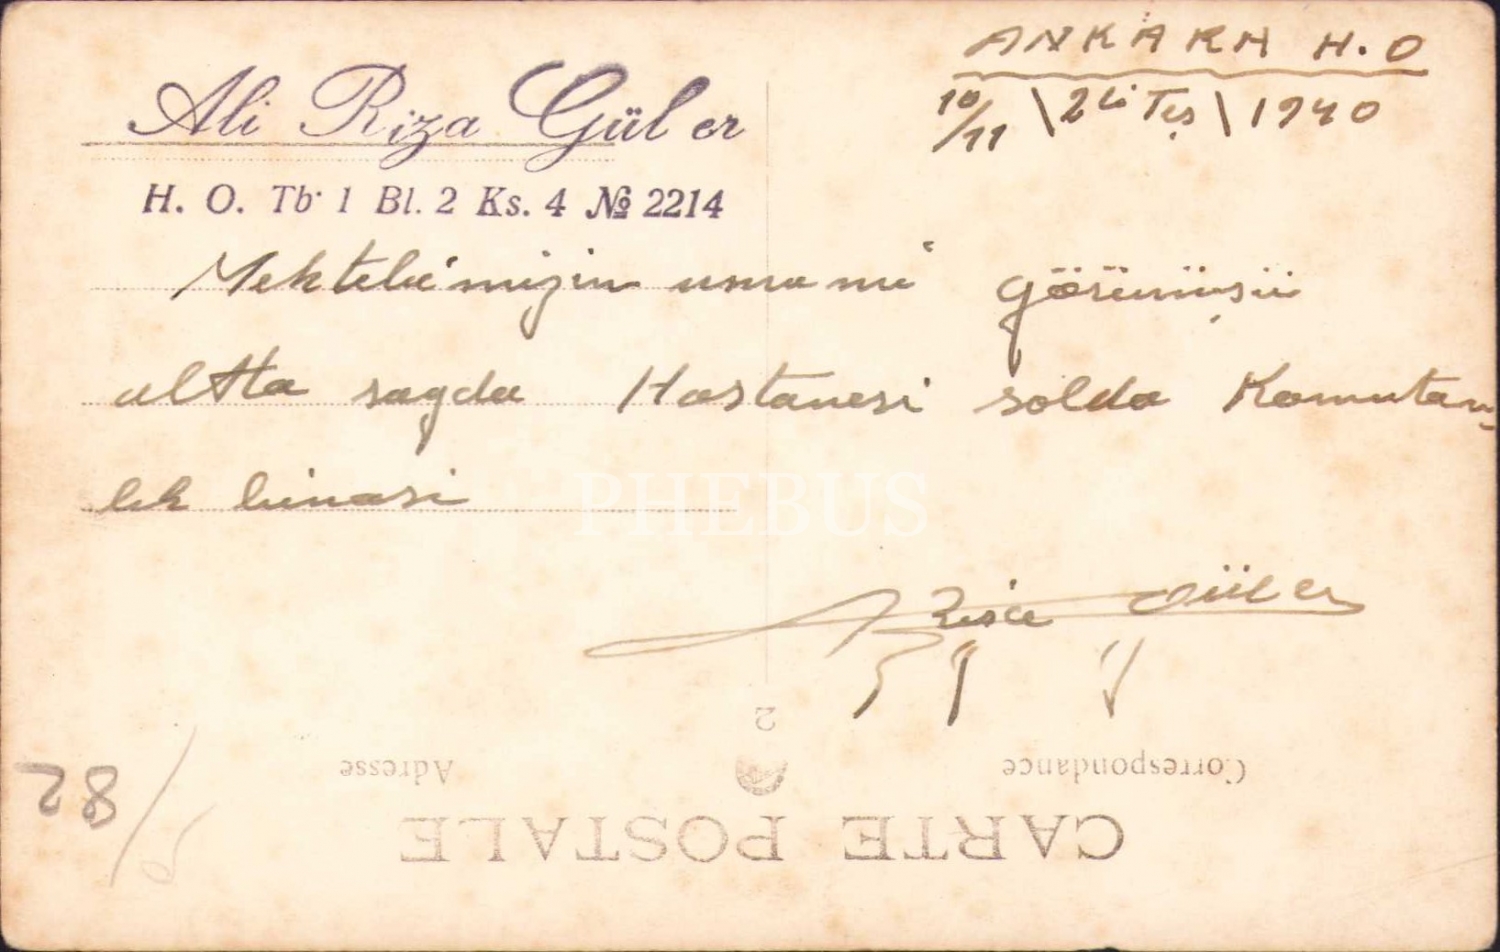 ANKARA H.O
10/11 \ 2li Teş \ 1940
Ali Riza Güler
H. O. Tb. 1 Bl. 2 Ks. 4 № 2214
Mektebimizin umumi görünüşü
altta sagda Hastanesi solda Komutan-
lık binasi
PHEBUS
Riza Güler
2
Adresse
Correspondance
CARTE POSTALE
28/